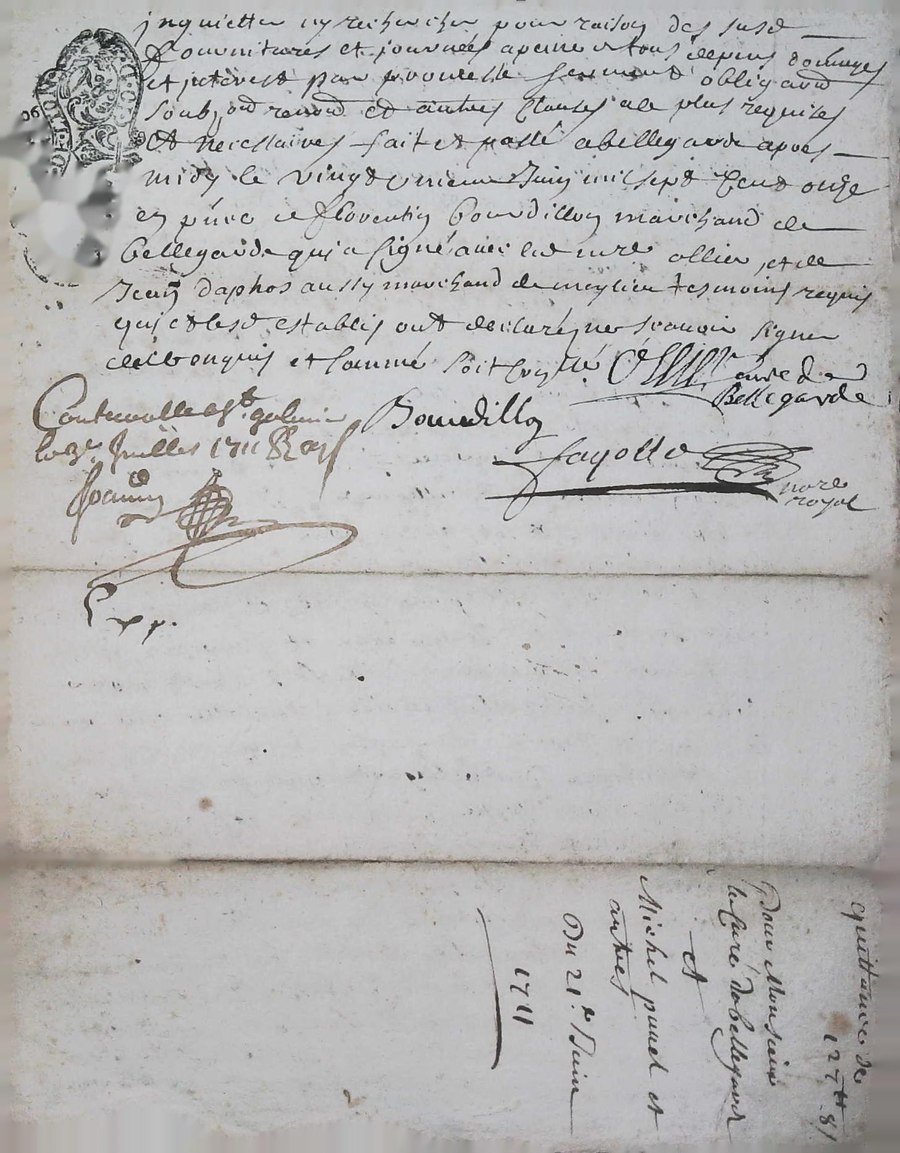 inquietter ny rechercher pour raison des susd
fournitures et journées a peine de tous depens domages
et interest par promesse serment obligaõn
soubzoñ renoñ et autres clauses de plus requises
et necessaires fait et passé a bellegarde apres
midy le vingt unieme Juin mil sept cent onze
en pñce de florentin bourdillon marchand de
bellegarde qui a signé avec led sieur ollier, et de
Jean daphos aussy marchand de meylieu tesmoins requis
qui et lesd establis ont declaré ne scavoir signer
de ce enquis et sommé
Ollier curé de
Bellegarde
Controllé a St. galmier
le 3e Juillet 1711
Bourdillon
fayolle
nore
royal
Exp.
quittance de
127tt 8s
Pour Monsieur
le Curé de bellegarde
et
Michel et
autres
Du 21e Juin
1711